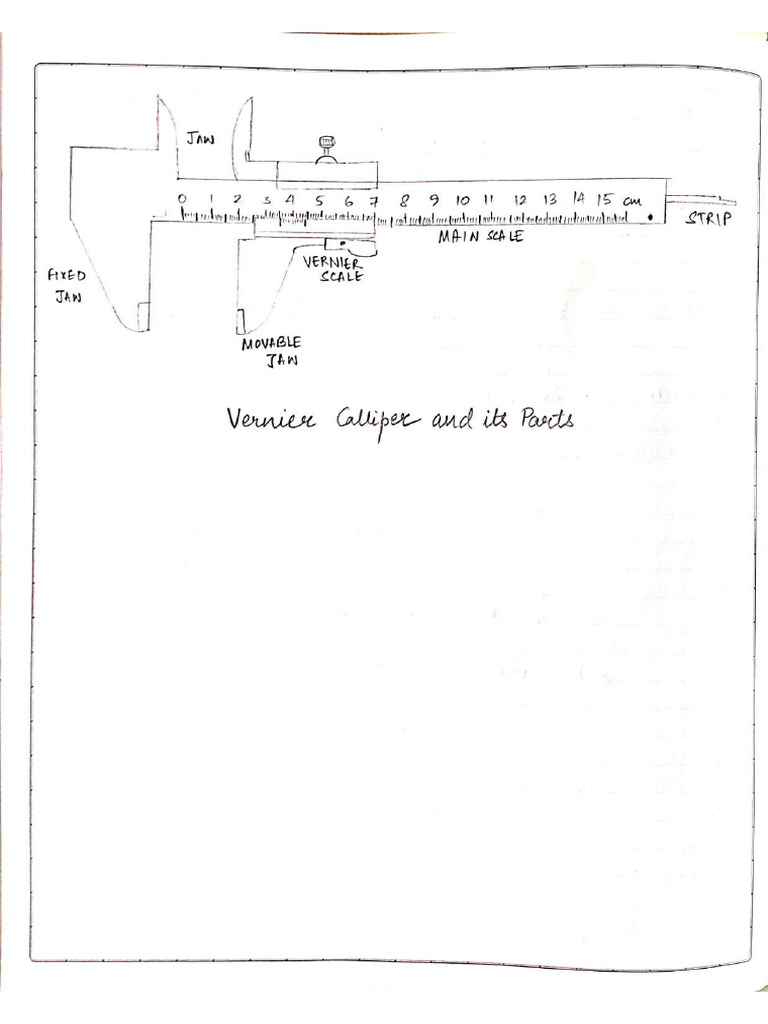 JAW
0 1 2 3 4 5 6 7 8 9 10 11 12 13 14 15 cm
STRIP
MAIN SCALE
VERNIER
SCALE
FIXED
JAW
MOVABLE
JAW
Vernier Calliper and its Parts